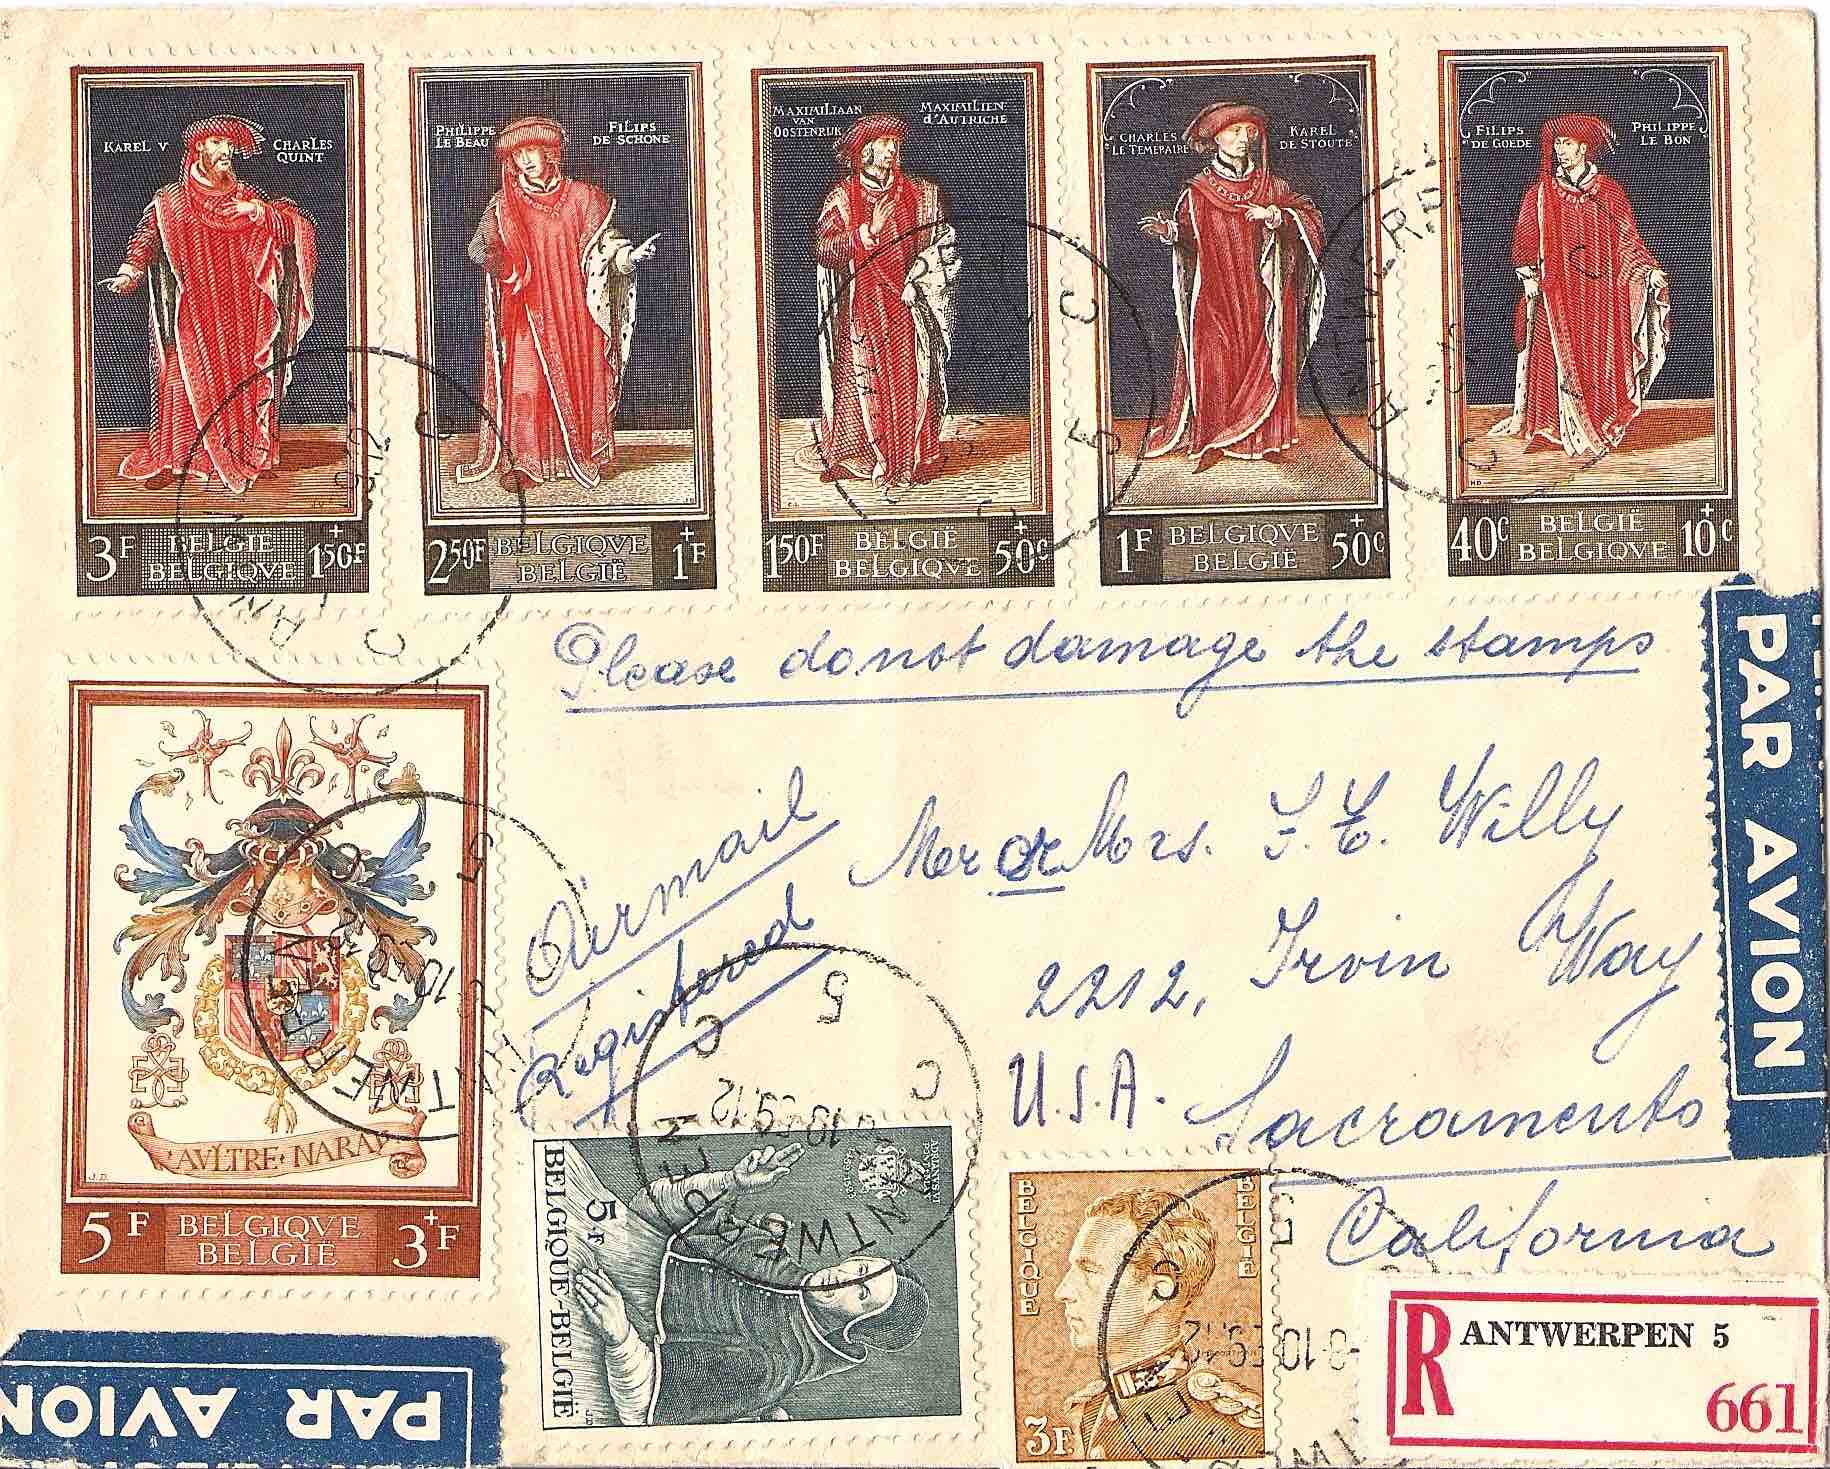 KAREL V
CHARLES
QUINT
3F BELGIË
BELGIQVE + 150F
PHILIPPE
LE BEAU
FILIPS
DE SCHONE
250F BELGIQVE
BELGIË + 1F
MAXIMILIAAN
VAN
OOSTENRIJK
MAXIMILIEN
d'AUTRICHE
150F BELGIË
BELGIQVE + 50C
CHARLES
LE TEMERAIRE
KAREL
DE STOUTE
1F BELGIQVE
BELGIË + 50C
FILIPS
DE GOEDE
PHILIPPE
LE BON
40C BELGIË
BELGIQVE + 10C
Please do not damage the stamps
PAR AVION
Airmail
Registered
Mr or Mrs.
Willy
2212, Irvin Way
U.S.A. Sacramento
California
AVLTRE NARAY
J.D.
5F BELGIQVE
BELGIË + 3F
ANTWERPEN
5
C C
10-59.12
BELGIQUE-BELGIË
5F
BELGIQUE
BELGIE
3F.
R ANTWERPEN 5
661
PAR AVION